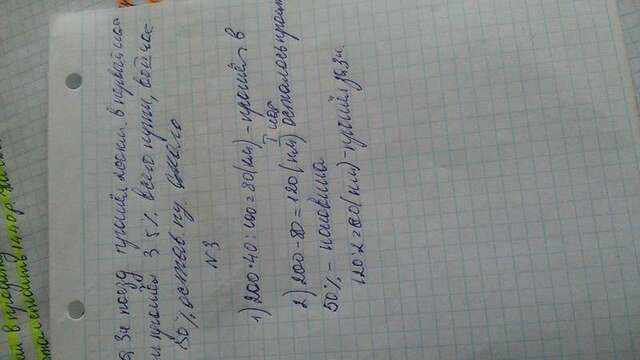 в
стоить 1440р.
За 3ч поезд прошёл 200км. в первый час
он прошёл 35% всего пути, во II час
50% остав. пу.
N3
1) 200·40:100=80(км) - прошёл в
I час
2) 200-80=120(км) осталось пройти
50% - половина
120:2=60(км) - прошёл за 3ч.